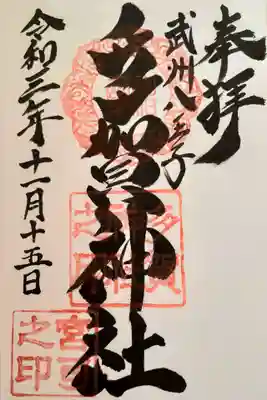 奉拝
武州八王子
多加賀神社
令和三年十一月十五日
多賀神社之印
宮司之印